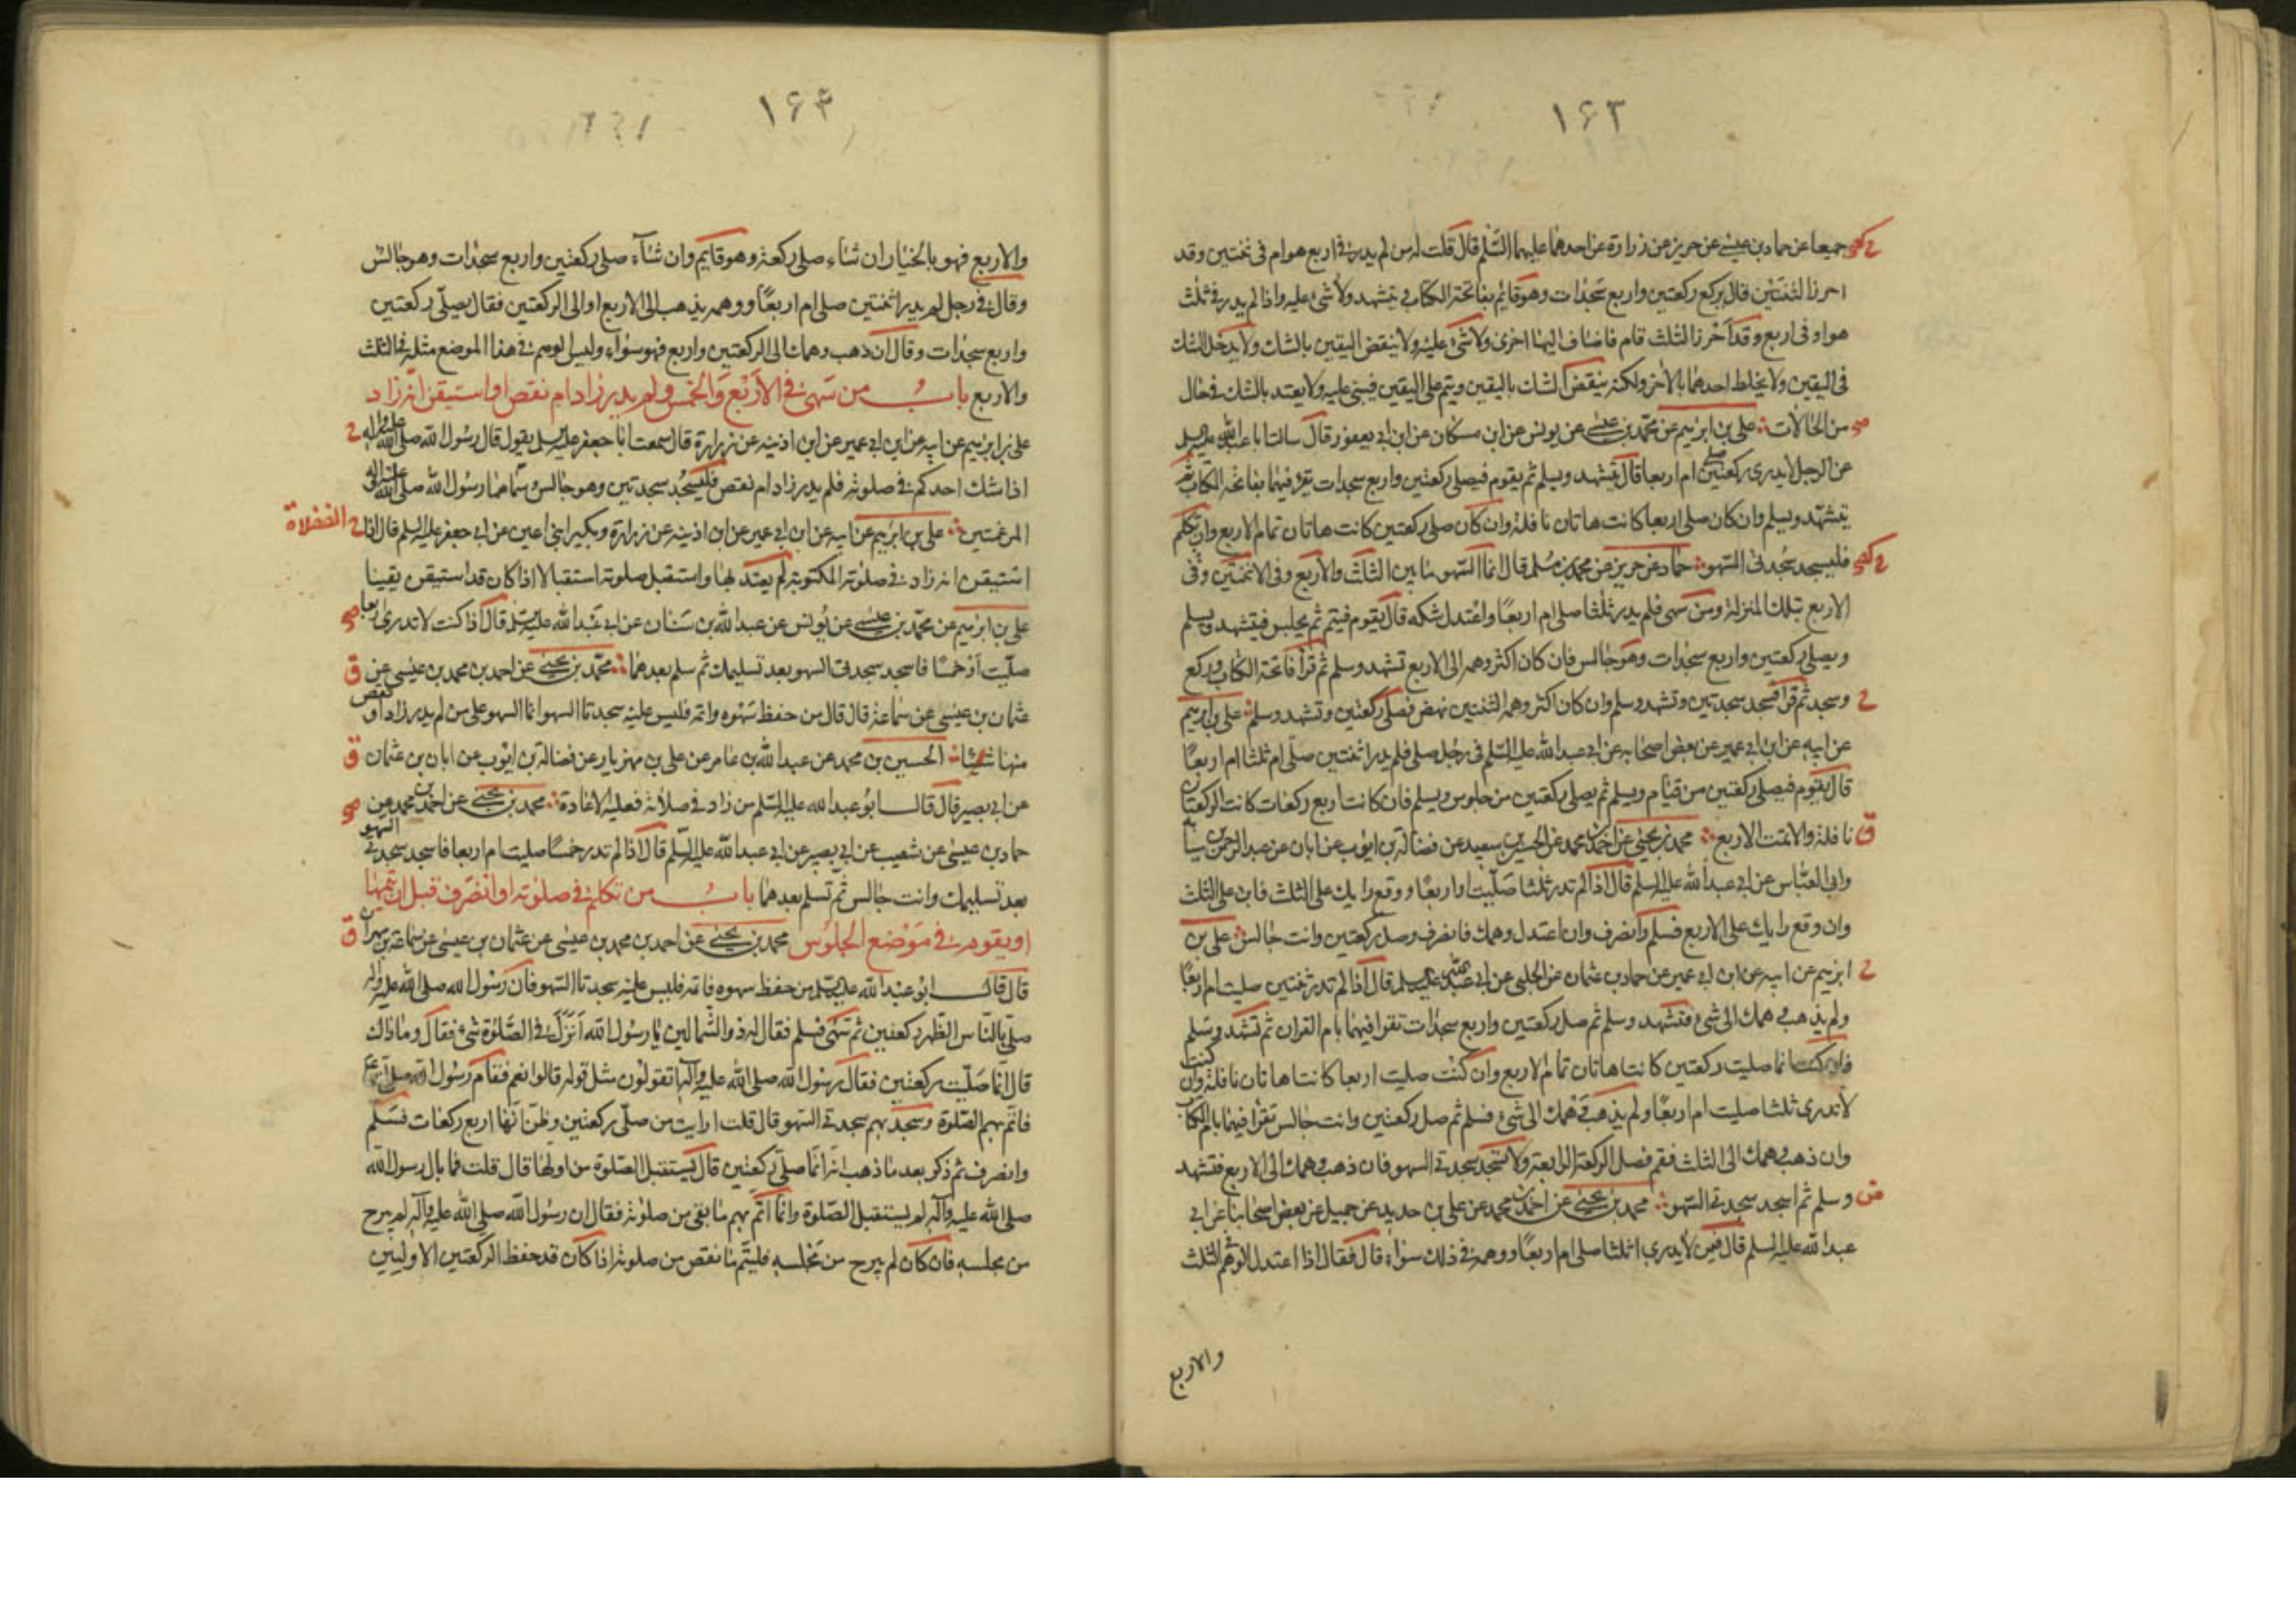 ١٦٣
جميعا عن حماد بن عيسى عن حريز عن زرارة عن احدهما عليهما السلم قال قلت له من لم يدر في اربع هو ام في ثنتين وقد
احرز الثنتين قال يركع ركعتين واربع سجدات وهو قائم بفاتحة الكتاب ويتشهد ولا شئ عليه واذا لم يدر في ثلث
هو او في اربع وقد احرز الثلث قام فاضاف اليها اخرى ولا شئ عليه ولا ينقض اليقين بالشك ولا يدخل الشك
في اليقين ولا يخلط احدهما بالاخر ولكنه ينقض الشك باليقين ويتم على اليقين فيبني عليه ولا يعتد بالشك في حال
من الحالات علي بن ابرهيم عن محمد بن عيسى عن يونس عن ابن مسكان عن ابن ابي يعفور قال سالت ابا عبد الله عليه السلم
عن الرجل لا يدري ركعتين صلى ام اربعا قال يتشهد ويسلم ثم يقوم فيصلي ركعتين واربع سجدات يقرء فيهما بفاتحة الكتاب ثم
يتشهد ويسلم وان كان صلى اربعا كانت هاتان نافلة وان كان صلى ركعتين كانت هاتان تمام الاربع وان تكلم
فليسجد سجدتي السهو حماد عن حريز عن محمد بن مسلم قال انما السهو ما بين الثلث والاربع وفي الاثنتين وفي
الاربع بتلك المنزلة ومن سهى فلم يدر ثلثا صلى ام اربعا واعتدل شكه قال يقوم فيتم ثم يجلس فيتشهد ويسلم
ويصلي ركعتين واربع سجدات وهو جالس فان كان اكثر وهمه الى الاربع تشهد وسلم ثم قرأ فاتحة الكتاب وركع
وسجد ثم قرأ فسجد سجدتين وتشهد وسلم وان كان اكثر وهمه الثنتين نهض فصلى ركعتين وتشهد وسلم علي بن ابرهيم
عن ابيه عن ابن ابي عمير عن بعض اصحابه عن ابي عبد الله عليه السلم في رجل صلى فلم يدر اثنتين صلى ام ثلثا ام اربعا
قال يقوم فيصلي ركعتين من قيام ويسلم ثم يصلي ركعتين من جلوس ويسلم فان كانت اربع ركعات كانت الركعتان
نافلة والا تمت الاربع محمد بن يحيى عن احمد بن محمد عن الحسين بن سعيد عن فضالة بن ايوب عن ابان عن عبد الرحمن بن سيابة
وابي العباس عن ابي عبد الله عليه السلم قال اذا لم تدر ثلثا صليت او اربعا ووقع رايك على الثلث فابن على الثلث
وان وقع رايك على الاربع فسلم وانصرف وان اعتدل وهمك فانصرف وصل ركعتين وانت جالس علي بن
ابرهيم عن ابيه عن ابن ابي عمير عن حماد بن عثمان عن الحلبي عن ابي عبد الله عليه السلم قال اذا لم تدر ثنتين صليت ام اربعا
ولم يذهب وهمك الى شئ فتشهد وسلم ثم صل ركعتين واربع سجدات تقرا فيهما بام القران ثم تشهد وتسلم
فان كنت انما صليت ركعتين كانتا هاتان تمام الاربع وان كنت صليت اربعا كانتا هاتان نافلة وان كنت
لا تدري ثلثا صليت ام اربعا ولم يذهب وهمك الى شئ فسلم ثم صل ركعتين وانت جالس تقرا فيهما بام الكتاب
وان ذهب وهمك الى الثلث فقم فصل الركعة الرابعة ولا تسجد سجدتي السهو فان ذهب وهمك الى الاربع فتشهد
وسلم ثم اسجد سجدتي السهو محمد بن يحيى عن احمد بن محمد عن علي بن حديد عن جميل عن بعض اصحابنا عن ابي
عبد الله عليه السلم قال فيمن لا يدري اثلثا صلى ام اربعا ووهمه في ذلك سواء قال فقال اذا اعتدل الوهم في الثلث
والاربع
١٦٤
والاربع فهو بالخيار ان شاء صلى ركعة وهو قايم وان شاء صلى ركعتين واربع سجدات وهو جالس
وقال في رجل لم يدر اثنتين صلى ام اربعا ووهمه يذهب الى الاربع او الى الركعتين فقال يصلي ركعتين
واربع سجدات وقال ان ذهب وهمك الى الركعتين واربع فهو سواء وليس الوهم في هذا الموضع مثله في الثلث
والاربع باب من سهى في الاربع والخمس ولم يدر زاد ام نقص او استيقن انه زاد
علي بن ابرهيم عن ابيه عن ابن ابي عمير عن ابن اذينه عن زرارة قال سمعت ابا جعفر عليه السلم يقول قال رسول الله صلى الله عليه واله
اذا شك احدكم في صلوته فلم يدر زاد ام نقص فليسجد سجدتين وهو جالس وسماهما رسول الله صلى الله عليه واله
المرغمتين علي بن ابرهيم عن ابيه عن ابن ابي عمير عن ابن اذينه عن زرارة وبكير ابني اعين عن ابي جعفر عليه السلم قال اذا
استيقن انه زاد في صلوته المكتوبة لم يعتد بها واستقبل صلوته استقبالا اذا كان قد استيقن يقينا
علي بن ابرهيم عن محمد بن عيسى عن يونس عن عبد الله بن سنان عن ابي عبد الله عليه السلم قال اذا كنت لا تدري اربعا
صليت او خمسا فاسجد سجدتي السهو بعد تسليمك ثم سلم بعدهما محمد بن يحيى عن احمد بن محمد بن عيسى عن
عثمان بن عيسى عن سماعة قال قال من حفظ سهوه واتمه فليس عليه سجدتا السهو انما السهو على من لم يدر زاد او نقص
منها شيئا الحسين بن محمد عن عبد الله بن عامر عن علي بن مهزيار عن فضالة بن ايوب عن ابان بن عثمان
عن ابي بصير قال قال ابو عبد الله عليه السلم من زاد في صلاته فعليه الاعادة محمد بن يحيى عن احمد بن محمد عن
حماد بن عيسى عن شعيب عن ابي بصير عن ابي عبد الله عليه السلم قال اذا لم تدر خمسا صليت ام اربعا فاسجد سجدتي السهو
بعد تسليمك وانت جالس ثم تسلم بعدهما باب من تكلم في صلوته او انصرف قبل ان يتمها
او يقوم في موضع الجلوس محمد بن يحيى عن احمد بن محمد بن عيسى عن عثمان بن عيسى عن سماعة بن مهران
قال قال ابو عبد الله عليه السلم من حفظ سهوه فاتمه فليس عليه سجدتا السهو فان رسول الله صلى الله عليه واله
صلى بالناس الظهر ركعتين ثم سهى فسلم فقال له ذو الشمالين يا رسول الله أنزل في الصلوة شئ فقال وما ذاك
قال انما صليت ركعتين فقال رسول الله صلى الله عليه وآله اتقولون مثل قوله قالوا نعم فقام رسول الله
فاتم بهم الصلوة وسجد بهم سجدتي السهو قال قلت ارايت من صلى ركعتين وظن انها اربع ركعات فسلم
وانصرف ثم ذكر بعد ما ذهب انه انما صلى ركعتين قال يستقبل الصلوة من اولها قال قلت فما بال رسول الله
صلى الله عليه وآله لم يستقبل الصلوة وانما اتم بهم ما بقي من صلوته فقال ان رسول الله صلى الله عليه وآله لم يبرح
من مجلسه فان كان لم يبرح من مجلسه فليتم ما نقص من صلوته اذا كان قد حفظ الركعتين الاوليين